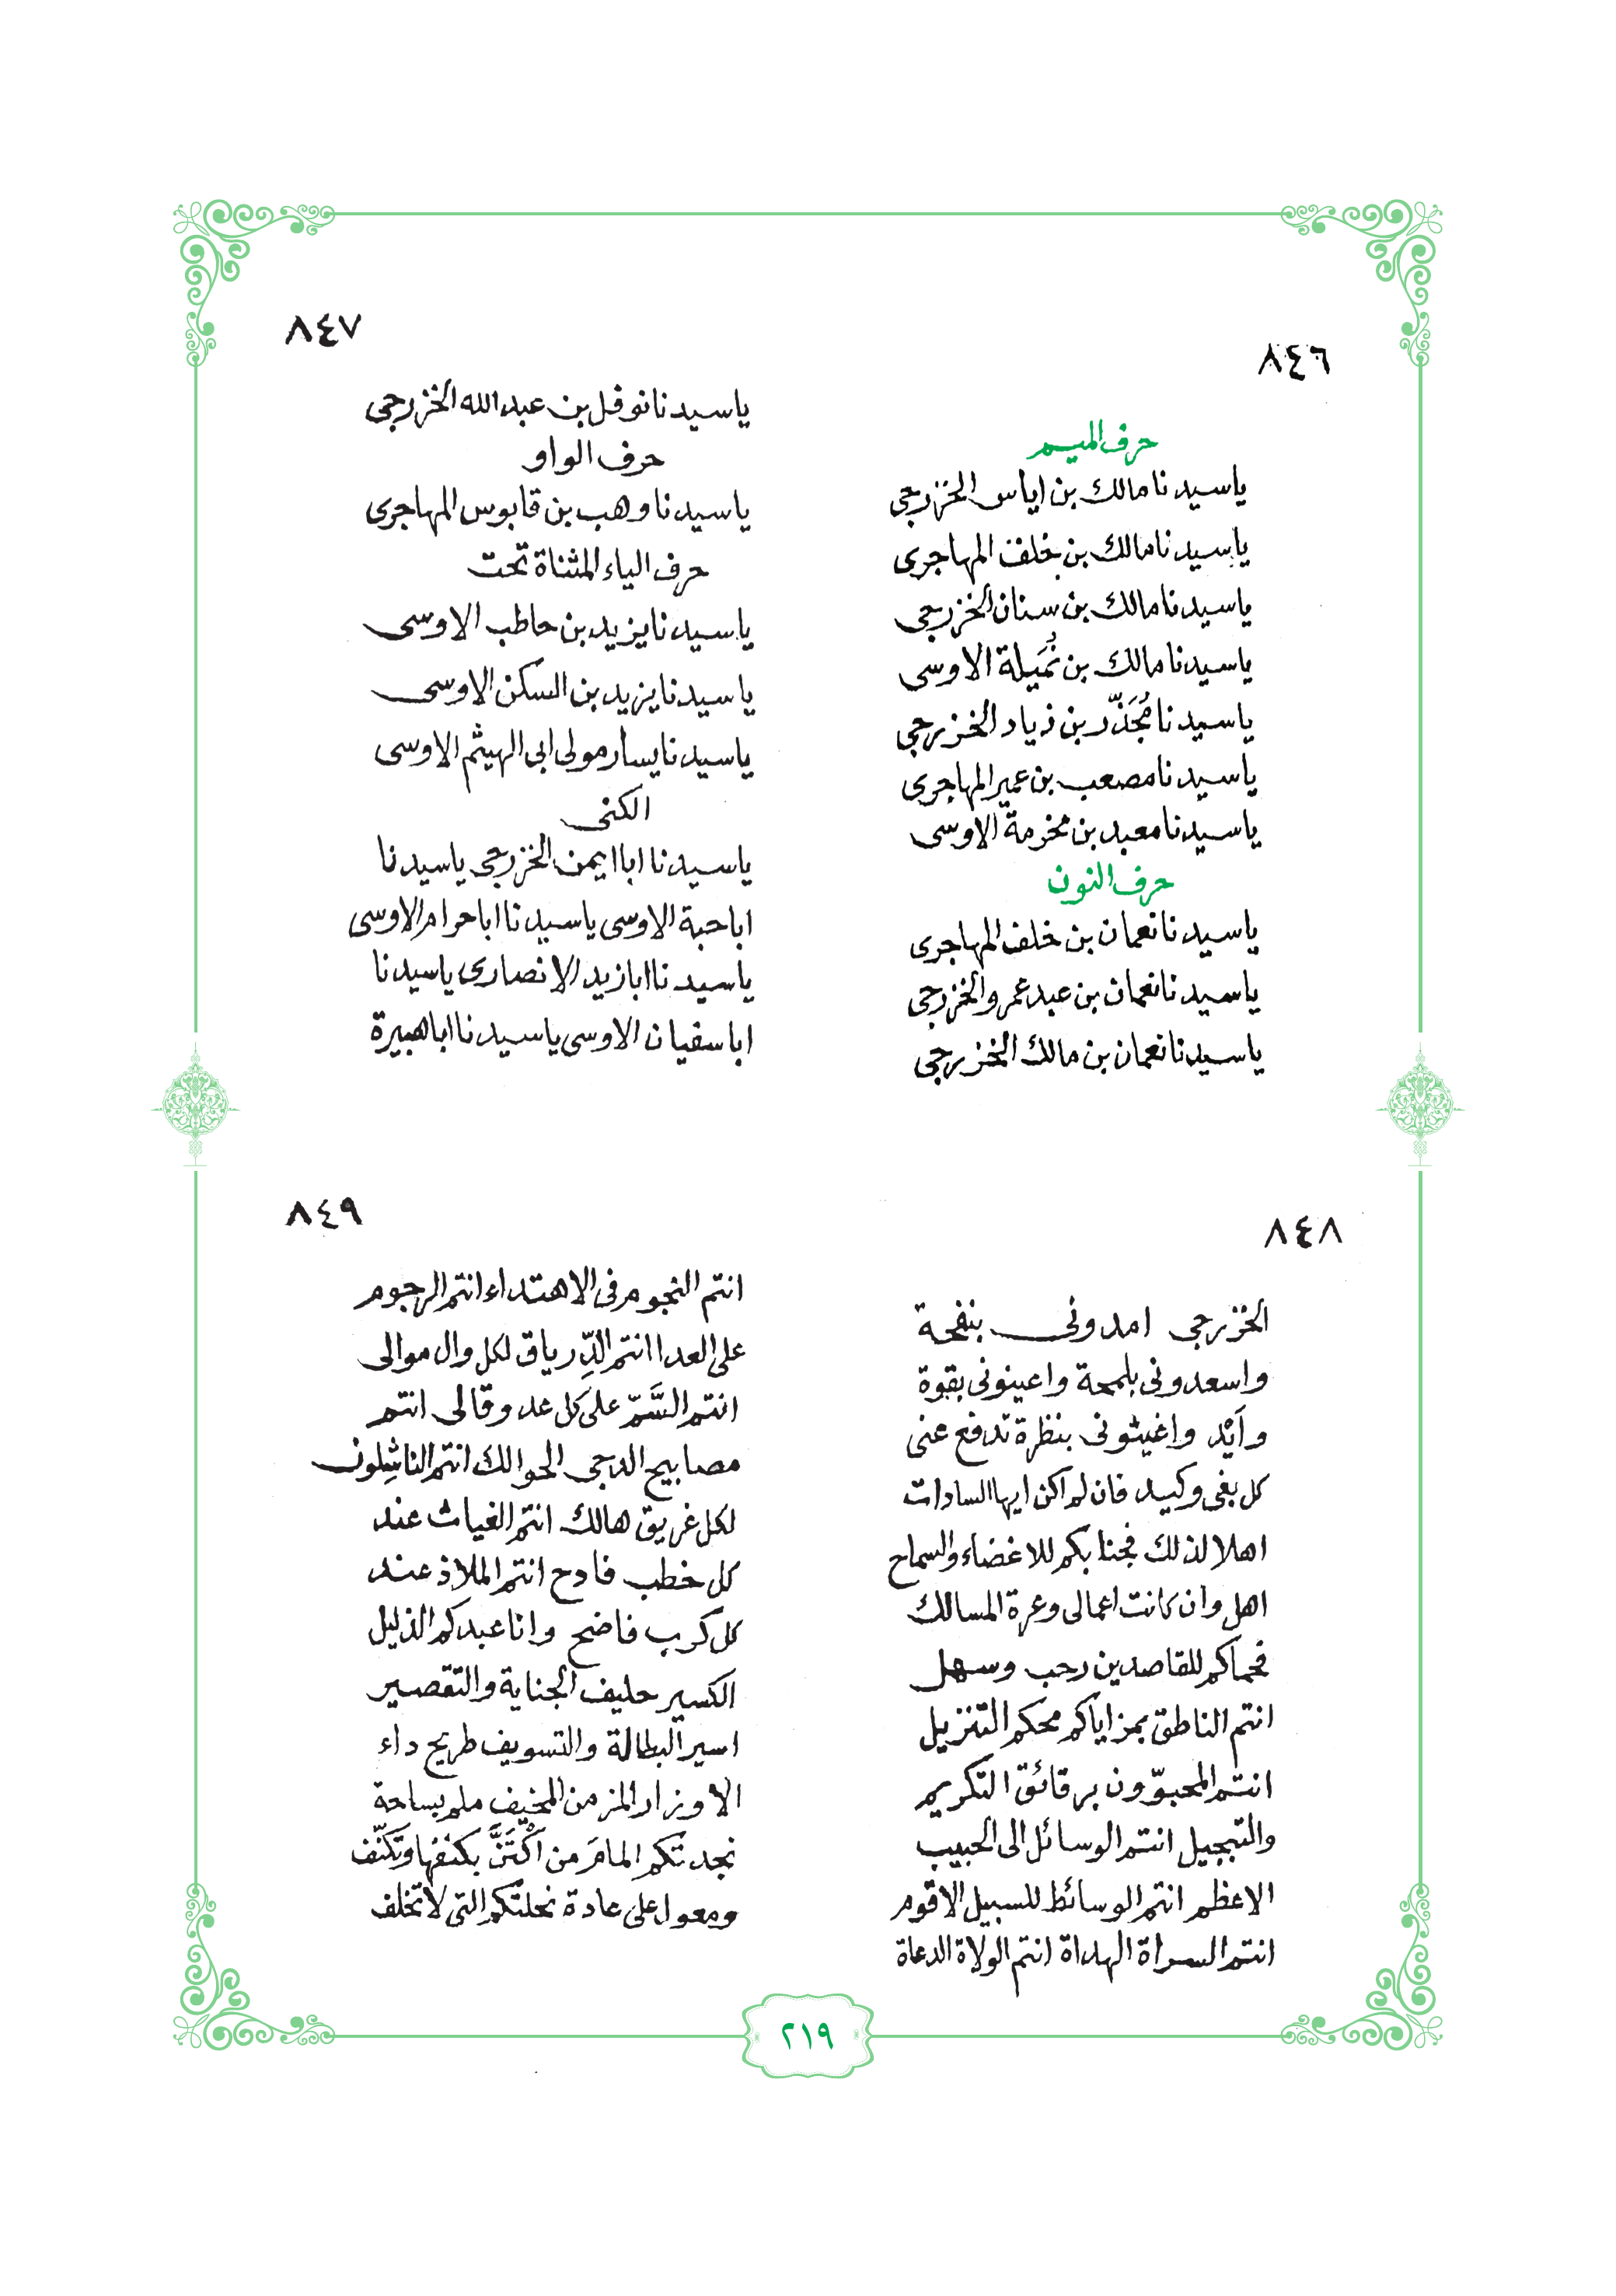 ٨٤٦
حرف الميم
ياسيدنا مالك بن اياس الخزرجى
ياسيدنا مالك بن خلف المهاجرى
ياسيدنا مالك بن سنان الخزرجى
ياسيدنا مالك بن نُمَيلة الاوسى
ياسيدنا مُجَذّر بن زياد الخزرجى
ياسيدنا مصعب بن عمير المهاجرى
ياسيدنا معبد بن مخرمة الاوسى
حرف النون
ياسيدنا نعمان بن خلف المهاجرى
ياسيدنا نعمان بن عبد عمرو الخزرجى
ياسيدنا نعمان بن مالك الخزرجى
٨٤٧
ياسيدنا نوفل بن عبد الله الخزرجى
حرف الواو
ياسيدنا وهب بن قابوس المهاجرى
حرف الياء المثناة تحت
ياسيدنا يزيد بن حاطب الاوسى
ياسيدنا يزيد بن السكن الاوسى
ياسيدنا يسار مولى ابى الهيثم الاوسى
الكنى
ياسيدنا ابا ايمن الخزرجى ياسيدنا
ابا حبة الاوسى ياسيدنا ابا حرام الاوسى
ياسيدنا ابا زيد الانصارى ياسيدنا
ابا سفيان الاوسى ياسيدنا ابا هبيرة
٨٤٨
الخزرجى امدونى بنفحة
واسعدونى بلمحة واعينونى بقوة
وآيْد واغيثونى بنظرة تدفع عنى
كل بغى وكيد فان لم اكن ايها السادات
اهلا لذلك فجنابكم للاغضاء والسماح
اهل وان كانت اعمالى وعرة المسالك
فحماكم للقاصدين رحب وسهل
انتم الناطق بمزاياكم محكم التنزيل
انتم المحبوّون برقائق التكريم
والتبجيل انتم الوسائل الى الحبيب
الاعظم انتم الوسائط للسبيل الاقوم
انتم السراة الهداة انتم الولاة الدعاة
٨٤٩
انتم النجوم فى الاهتداء انتم الرجوم
على العدا انتم الدِّرياق لكل وال موالى
انتم السَّمّ على كل عد وقالى انتم
مصابيح الدجى الحوالك انتم الناشِلون
لكل غريق هالك انتم الغياث عند
كل خطب فادح انتم الملاذ عند
كل كرب فاضح وانا عبدكم الذليل
الكسير حليف الجناية والتقصير
اسير البطالة والتسويف طريح داء
الاوزار المزمن المخيف ملم بساحة
نجدتكم المامَ من اكْتَنَّ بكنفها وتكنّف
ومعول على عادة نحلتكم التى لا تخلف
٢١٩